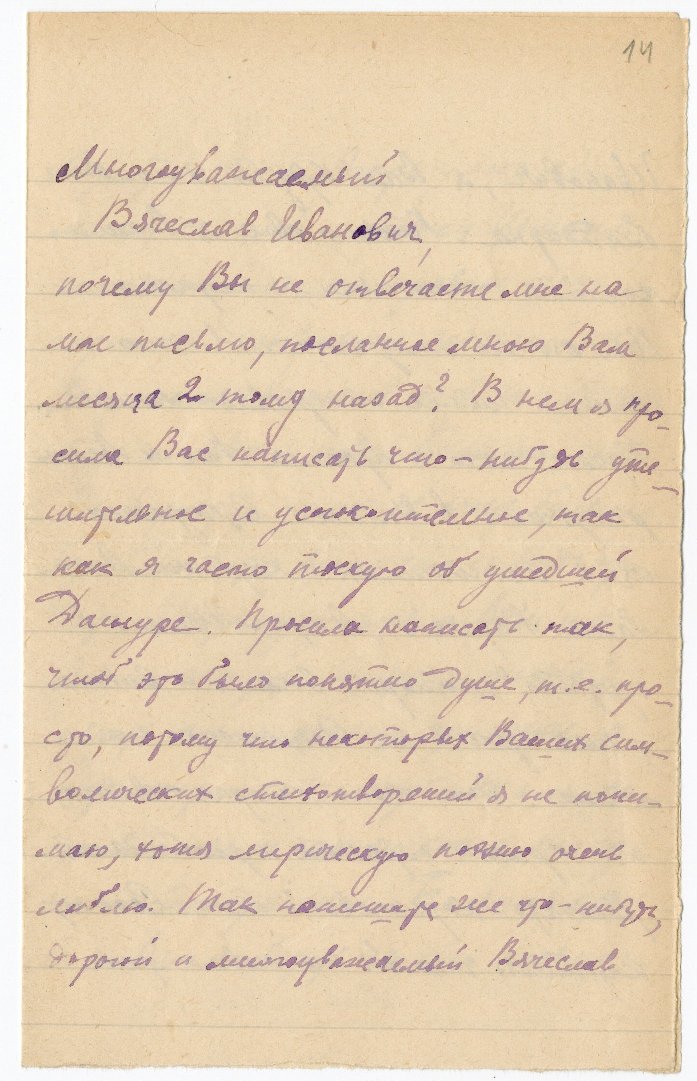 14
Многоуважаемый
Вячеслав Иванович,
почему Вы не отвечаете мне на
мое письмо, посланное мною Вам
месяца 2 тому назад? В нем я про-
сила Вас написать что-нибудь уте-
шительное и успокоительное, так
как я часто тоскую об ушедшей
Просила написать так,
чтоб это было понятно душе, т.е. про-
сто, потому что некоторых Ваших сим-
волических стихотворений я не пони-
маю, хотя лирическую поэзию очень
люблю. Так напишите же что-нибудь,
дорогой и многоуважаемый Вячеслав